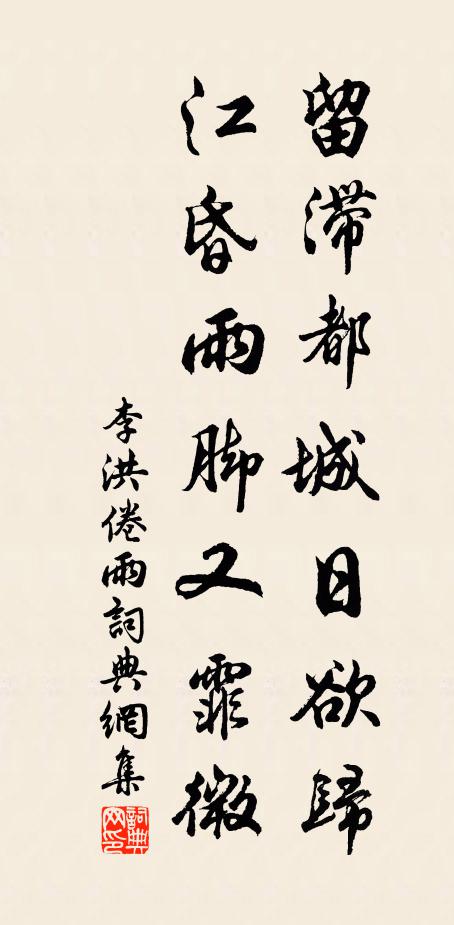 留滯都城日欲歸
江昏雨脚又霏微
李洪倦雨詞典網集
詞典網印